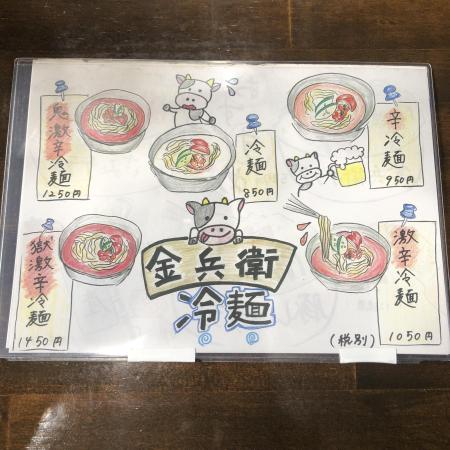 鬼激辛冷麺
1250円
冷麺
850円
辛冷麺
950円
獄激辛冷麺
1450円
金兵衛
冷麺
激辛冷麺
1050円
(税別)